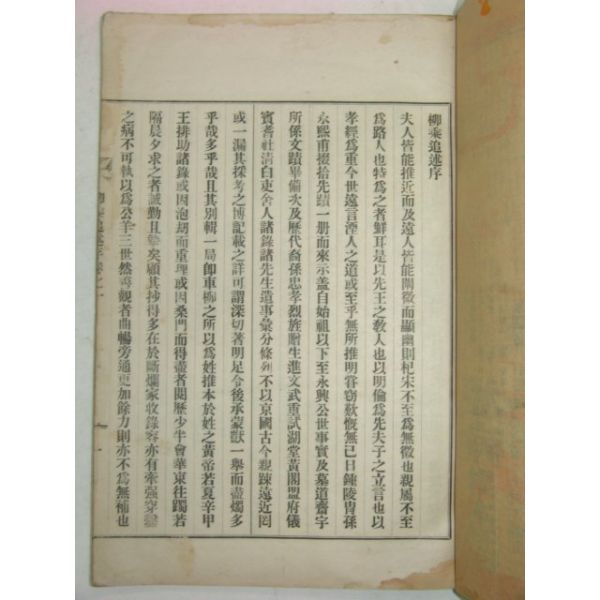 柳乘追述序
夫人皆能推近而及遠人皆能闡微而顯幽則杞宋不至爲無徵也親屬不至
爲路人也特爲之者鮮耳是以先王之敎人也以明倫爲先夫子之立言也以
孝經爲重今世遠言湮人之道或至乎無所推明嘗竊歎慨無已日鍾陵胄孫
永熙甫掇拾先蹟一册而來示盖自始祖以下至永興公世事實及墓道齋宇
所係文蹟畢備次及歷代裔孫忠孝烈旌贈生進文武重試湖堂黃閣盟府儀
賓耆社淸白吏舍人諸錄諸先生遺事彙分條列不以京國古今親踈遠近罔
或一漏其採考之博記載之詳可謂深切著明足令後承蒙獃一擧而盡燭多
乎哉多乎哉且其別輯一局卽車柳之所以爲姓推本於姓之黃帝若夏辛甲
王排助諸錄或因泡刼而重理或因桑門而得盡者閱歷少半會華東往躅若
隔晨夕求之者誠勤且摯矣顧其抄得多在於斷爛家收錄容亦有牽强穿鑿
之病不可執以爲公羊三世然善觀者曲暢旁通更加餘力則亦不爲無補也